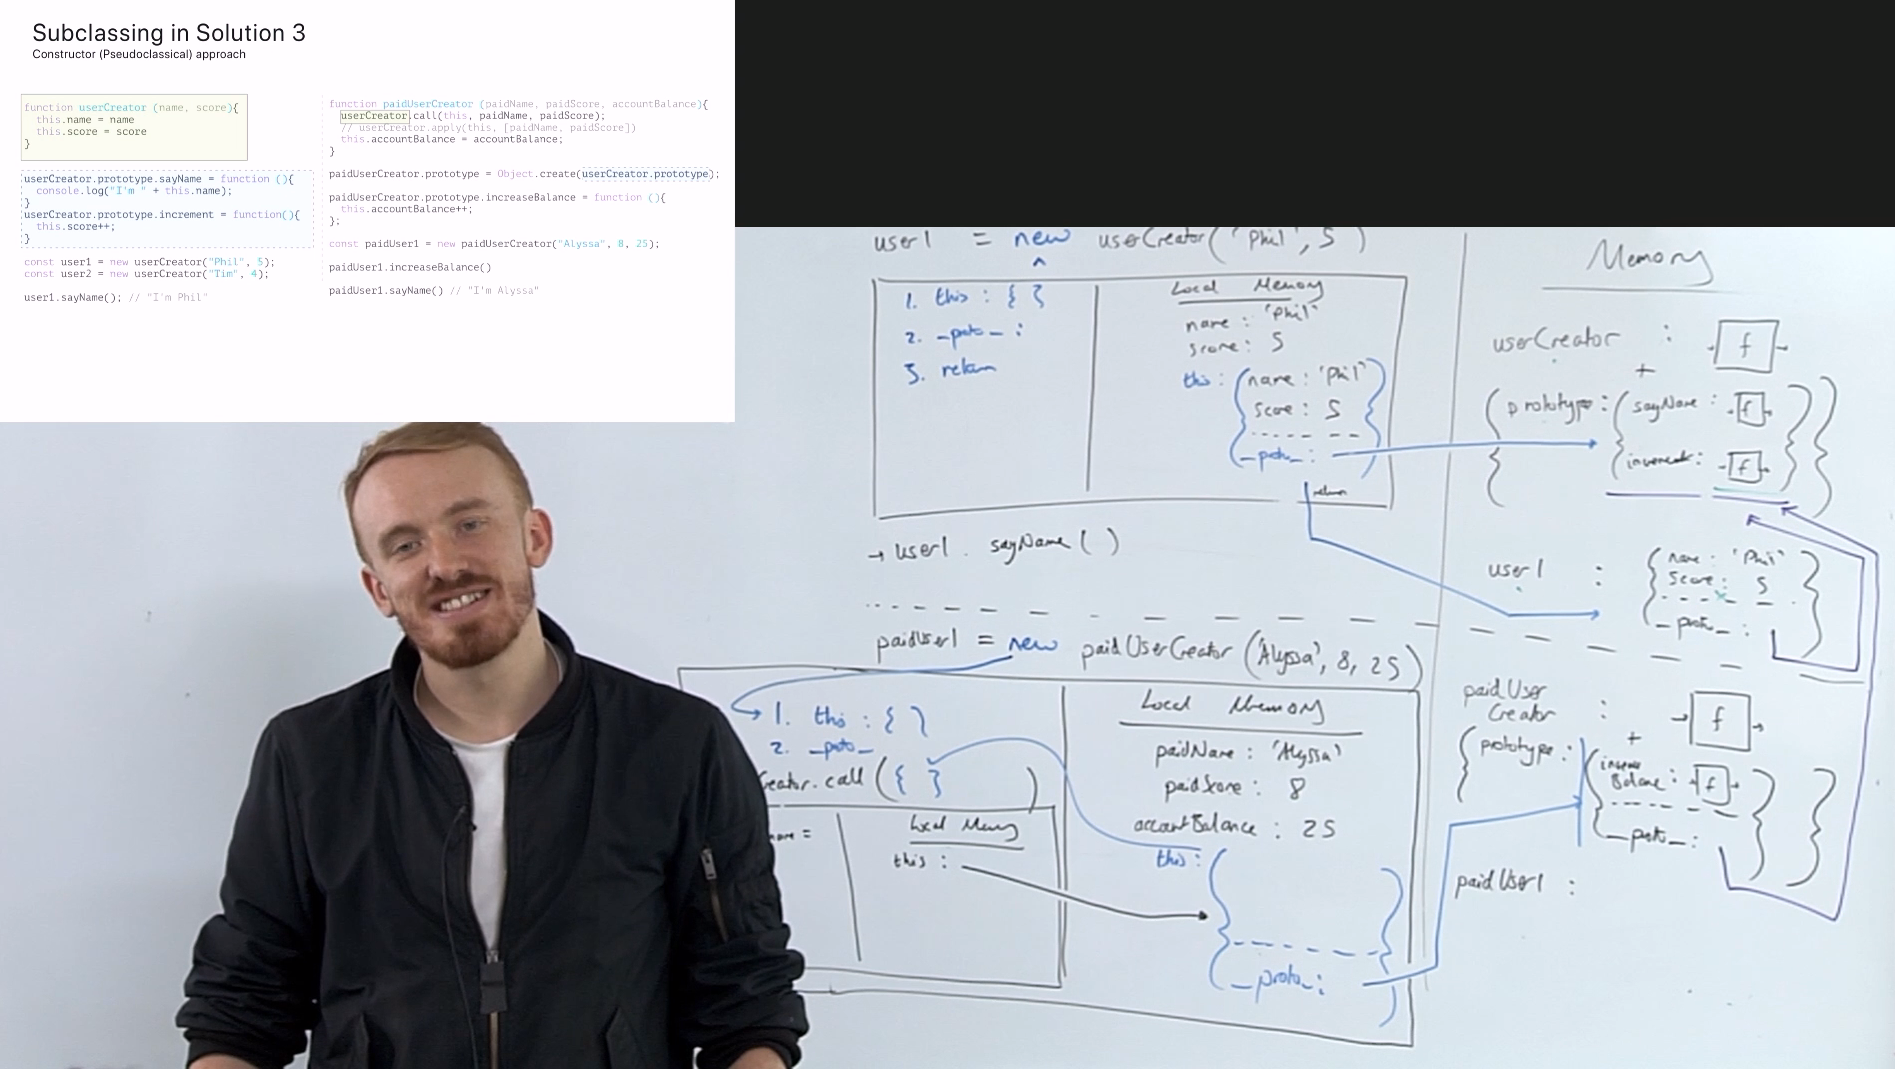 Subclassing in Solution 3
Constructor (Pseudoclassical) approach
function userCreator (name, score){
this.name = name
this.score = score
}
userCreator.prototype.sayName = function (){
console.log("I'm " + this.name);
}
userCreator.prototype.increment = function(){
this.score++;
}
const user1 = new userCreator("Phil", 5);
const user2 = new userCreator("Tim", 4);
user1.sayName(); // "I'm Phil"
function paidUserCreator (paidName, paidScore, accountBalance){
userCreator.call(this, paidName, paidScore);
// userCreator.apply(this, [paidName, paidScore])
this.accountBalance = accountBalance;
}
paidUserCreator.prototype = Object.create(userCreator.prototype);
paidUserCreator.prototype.increaseBalance = function (){
this.accountBalance++;
};
const paidUser1 = new paidUserCreator("Alyssa", 8, 25);
paidUser1.increaseBalance()
paidUser1.sayName() // "I'm Alyssa"
user1 = new userCreator('Phil', 5)
1. this : { }
2. _proto_ :
3. return
Local Memory
name : 'Phil'
score : 5
this : { name : 'Phil'
score : 5
_proto_ :
return
→ user1 . sayName ( )
paidUser1 = new paidUserCreator ('Alyssa', 8, 25)
1. this : { }
2. _proto_
Creator.call ({ } )
name =
Local Mem
this :
Local Memory
paidName : 'Alyssa'
paidScore : 8
accountBalance : 25
this : {
_proto_ :
Memory
userCreator : f
+
{ prototype : { sayName : f } }
increment : f
user1 : { name : 'Phil'
score : 5
_proto_ :
paidUser
Creator : f
+
{ prototype : {
Balance : f
_proto_ :
paidUser1 :